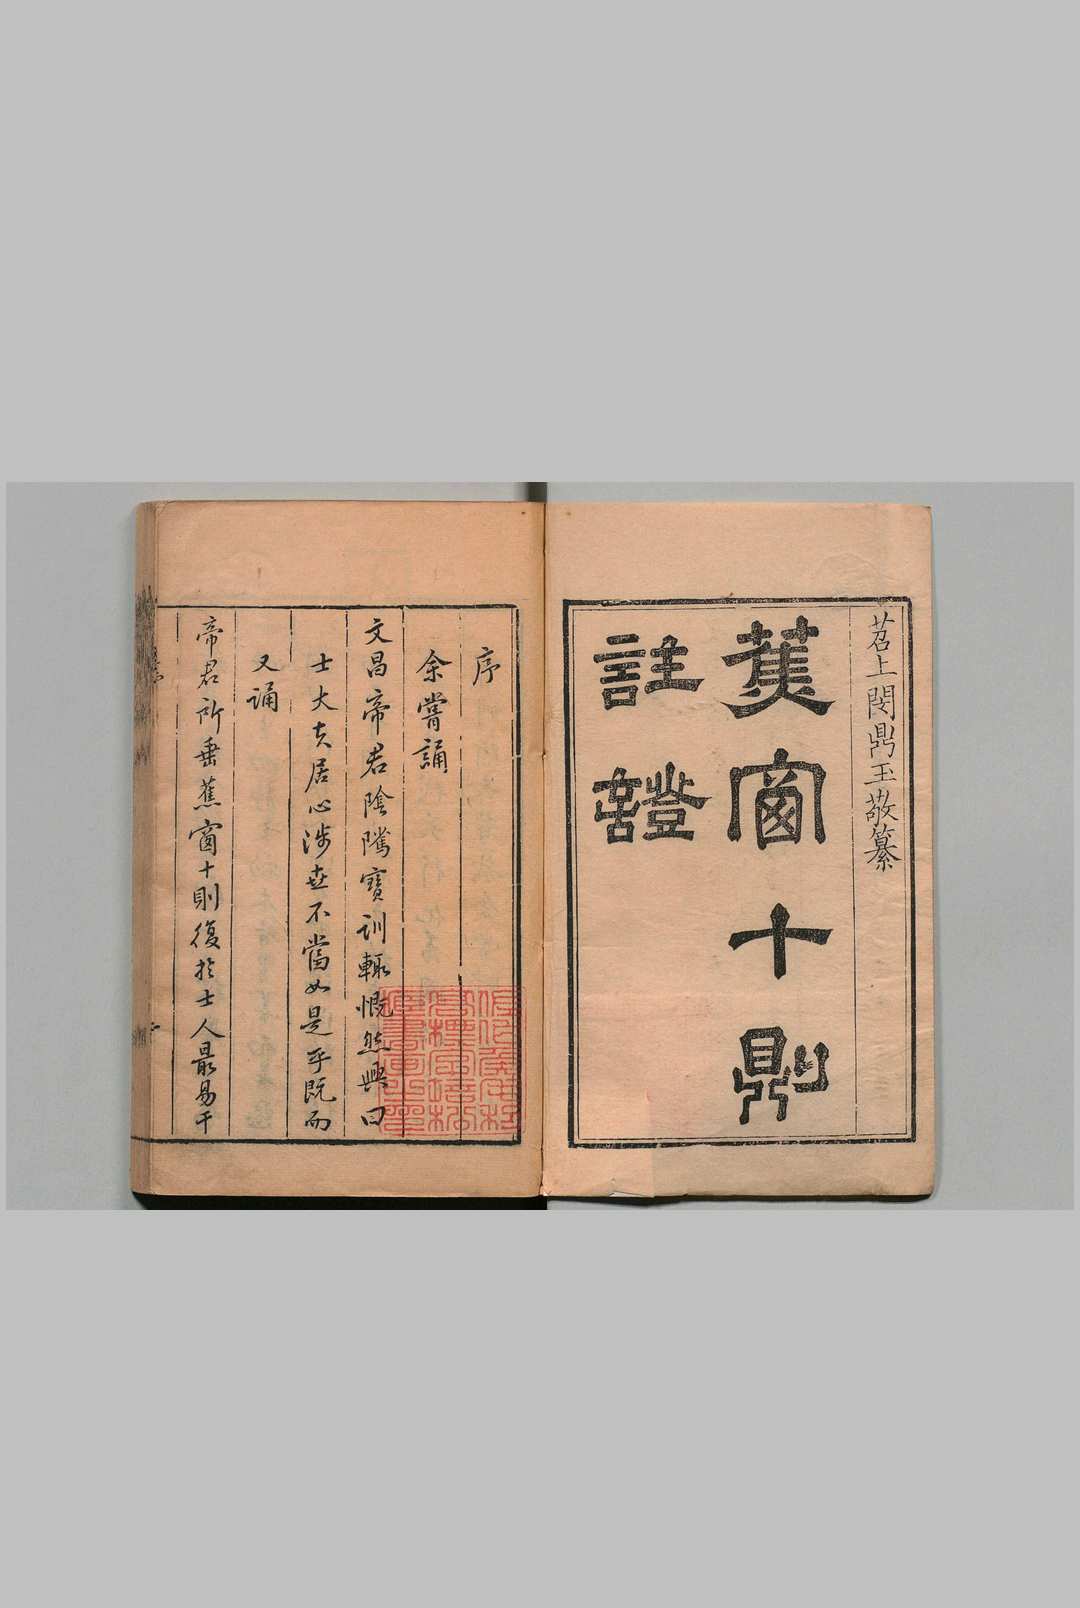 苕上閔鼎玉敬纂
蕉窗十則
註證
序
余嘗誦
文昌帝君陰隲寶訓輒慨然興曰
士大夫居心涉世不當如是乎既而
又誦
帝君所垂蕉窗十則復於士人最易干